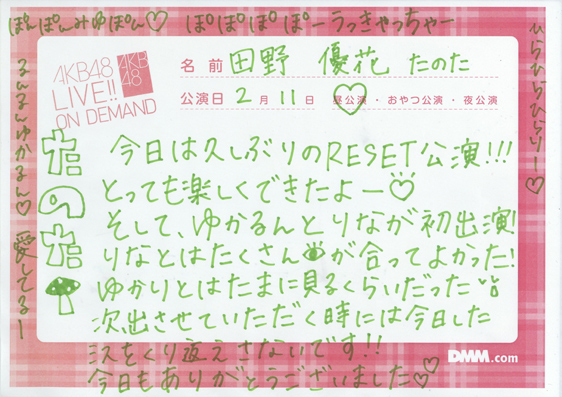 ぽんぽんみゆぽん♡ ぽぽぽぽーうっきゃっちゃー
AKB48
LIVE!!
ON DEMAND
AKB
48
名 前 田野 優花 たのた
公演日 2 月 11 日 昼公演・おやつ公演・夜公演
ひらひらひらりー♡
るんるんゆかるん♡ 愛してるー
たのた
今日は久しぶりのRESET公演!!!
とっても楽しくできたよー♡
そして、ゆかるんとりなが初出演!
りなとはたくさん👁が合ってよかった!
ゆかりとはたまに見るくらいだった
次出させていただく時には今日した
ミスをくり返えさないです!!
今日もありがとうございました♡♡
DMM.com